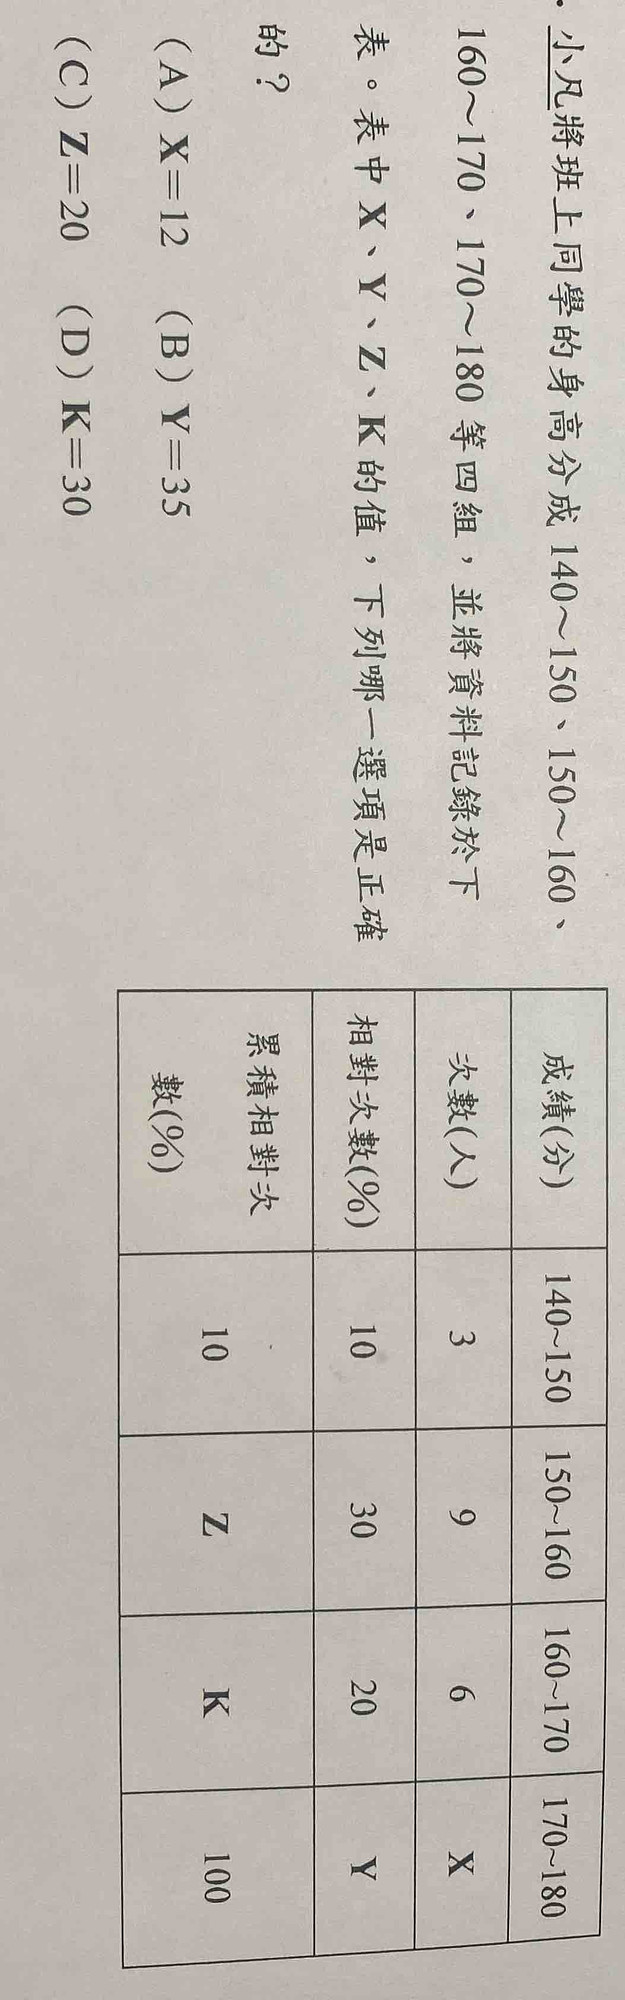 ．小凡將班上同學的身高分成 140～150、150～160、
160～170、170～180 等四組，並將資料記錄於下
表。表中 X、Y、Z、K 的值，下列哪一選項是正確
的？
（A）X=12 （B）Y=35
（C）Z=20 （D）K=30
成績(分) 140~150 150~160 160~170 170~180
次數(人) 3 9 6 X
相對次數(%) 10 30 20 Y
累積相對次
數(%) 10 Z K 100